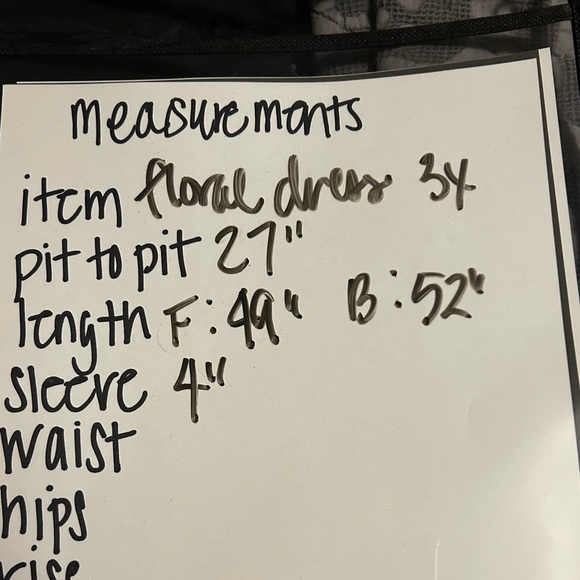 measurements
item floral dress 3X
pit to pit 27"
length F: 49" B: 52"
sleeve 4"
waist
hips
rise